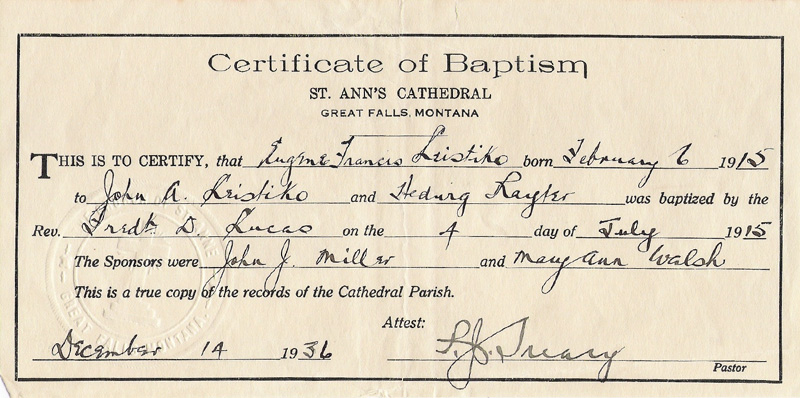 Certificate of Baptism
ST. ANN'S CATHEDRAL
GREAT FALLS, MONTANA
THIS IS TO CERTIFY, that Eugene Francis Leistiko born February 6 1915
to John A. Leistiko and Hedwig was baptized by the
Rev. Fredk D. Lucas on the 4 day of July 1915
The Sponsors were John J. Miller and Mary Ann Walsh
This is a true copy of the records of the Cathedral Parish.
Attest:
December 14 1936
Pastor